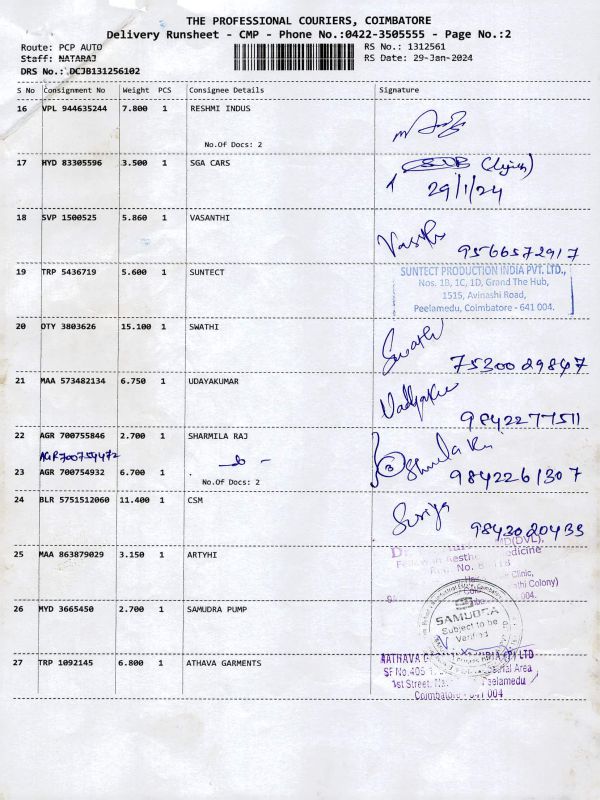 THE PROFESSIONAL COURIERS, COIMBATORE
Delivery Runsheet - CMP - Phone No.:0422-3505555 - Page No.:2
Route: PCP AUTO
RS No.: 1312561
Staff: NATARAJ
RS Date: 29-Jan-2024
DRS No.: DCJB131256102
S No Consignment No Weight PCS Consignee Details Signature
16 VPL 944635244 7.800 1 RESHMI INDUS
No.Of Docs: 2
17 HYD 83305596 3.500 1 SGA CARS
29/1/24
18 SVP 1500525 5.860 1 VASANTHI
9566572917
19 TRP 5436719 5.600 1 SUNTECT
SUNTECT PRODUCTION INDIA PVT. LTD.,
Nos. 1B, 1C, 1D, Grand The Hub,
1515, Avinashi Road,
Peelamedu, Coimbatore - 641 004.
20 OTY 3803626 15.100 1 SWATHI
Swathi
7530029847
21 MAA 573482134 6.750 1 UDAYAKUMAR
9842277511
22 AGR 700755846 2.700 1 SHARMILA RAJ
AGR 700754472
23 AGR 700754932 6.700 1
No.Of Docs: 2
9842261307
24 BLR 5751512060 11.400 1 CSM
Suriya
9843020433
25 MAA 863879029 3.150 1 ARTYHI
26 MYD 3665450 2.700 1 SAMUDRA PUMP
SAMUDRA
Subject to be
Verified
27 TRP 1092145 6.800 1 ATHAVA GARMENTS
1st Street, Peelamedu
004